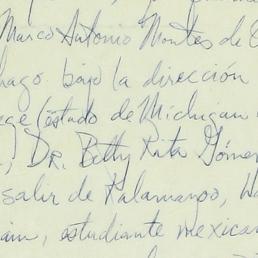 Marco Antonio Montes de O
hago bajo la dirección
ege (estado de Michigan
, Dr. Betty Rita Gómez
salir de Kalamazoo, W
ain, estudiante mexican